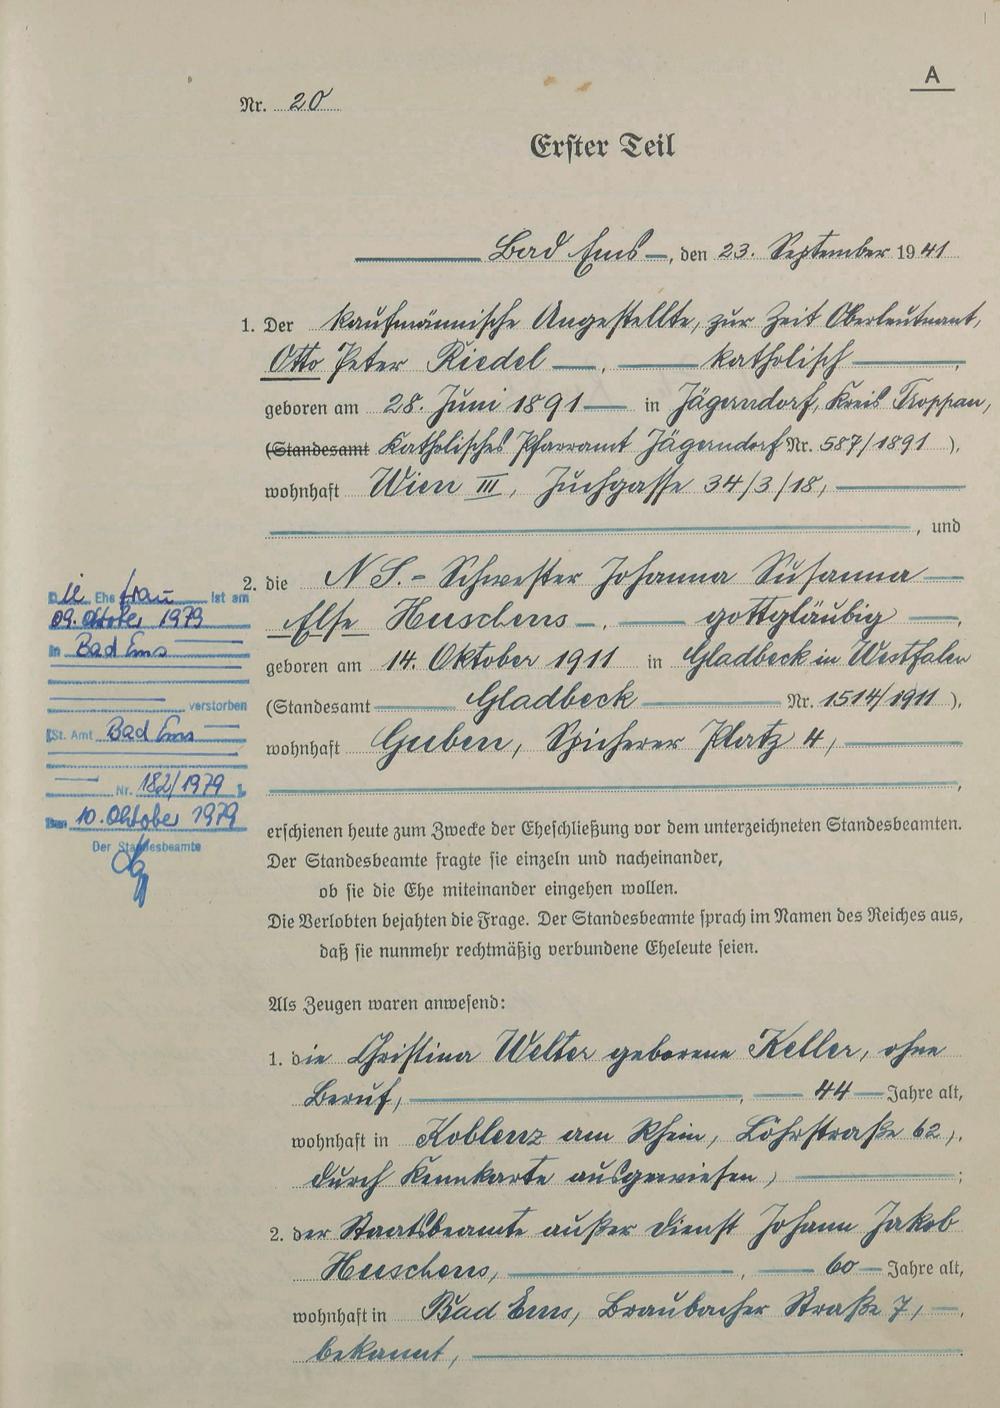 A
Nr. 20
Erster Teil
Bad Ems, den 23. September 1941
1. Der kaufmännische Angestellte, zur Zeit Oberleutnant,
Otto Peter Riedel, katholisch,
geboren am 28. Juni 1891 in Jägerndorf, Kreis Troppau,
(Standesamt Katholisches Pfarramt Jägerndorf Nr. 587/1891),
wohnhaft Wien III, Juchgasse 34/3/18,
, und
2. die N S.-Schwester Johanna Susanna
Else Heuschens, gottgläubig,
geboren am 14. Oktober 1911 in Gladbeck in Westfalen
(Standesamt Gladbeck Nr. 1514/1911),
wohnhaft Guben, Spicherer Platz 4,
Die Ehefrau ist am
09. Oktober 1979
in Bad Ems
verstorben
(St. Amt Bad Ems
Nr. 182/1979).
Den 10. Oktober 1979
Der Standesbeamte
erschienen heute zum Zwecke der Eheschließung vor dem unterzeichneten Standesbeamten.
Der Standesbeamte fragte sie einzeln und nacheinander,
ob sie die Ehe miteinander eingehen wollen.
Die Verlobten bejahten die Frage. Der Standesbeamte sprach im Namen des Reiches aus,
daß sie nunmehr rechtmäßig verbundene Eheleute seien.
Als Zeugen waren anwesend:
1. die Christina Welter geborene Keller, ohne
Beruf, , 44 Jahre alt,
wohnhaft in Koblenz am Rhein, Löhrstraße 62,
durch Kennkarte ausgewiesen, ;
2. der Staatsbeamte außer Dienst Johann Jakob
Heuschens, , 60 Jahre alt,
wohnhaft in Bad Ems, Braubacher Straße 7,
bekannt,